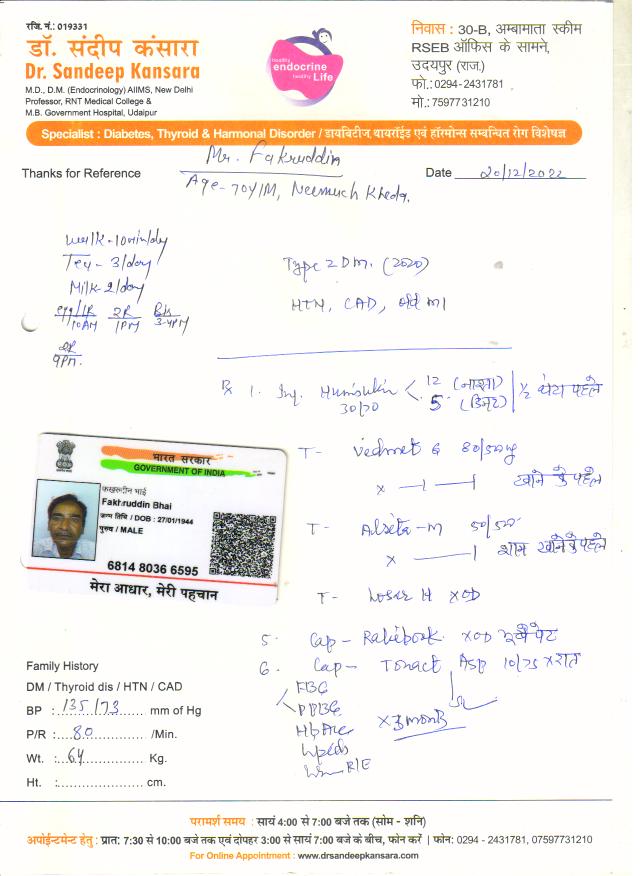 रजि. नं.: 019331
डॉ. संदीप कंसारा
Dr. Sandeep Kansara
M.D., D.M. (Endocrinology) AIIMS, New Delhi
Professor, RNT Medical College &
M.B. Government Hospital, Udaipur
healthy
endocrine
healthy Life
निवास : 30-B, अम्बामाता स्कीम
RSEB ऑफिस के सामने,
उदयपुर (राज.)
फो.:0294-2431781
मो.:7597731210
Specialist : Diabetes, Thyroid & Harmonal Disorder / डायबिटीज, थायरॉईड एवं हॉरमोन्स सम्बन्धित रोग विशेषज्ञ
Mr. Fakruddin
Thanks for Reference
Date 20/12/2022
Age - 70Y/M, Neemuch Kheda.
Walk - 10min/day
Tea - 3/day
Milk - 2/day
10AM 2R 1PM 3-4PM
2R
9PM.
Type 2 DM. (2020)
HTN, CAD, old MI
Rx 1. Inj. 30/70 12 (नाश्ता) 5 (डिनर) 1/2 घंटा पहले
T- 80/500mg
x —1 —1 खाने के पहले
T- -M 50/500
x —— 1 शाम खाने के पहले
T- Losar H x OD
5. Cap - x OD
6. Cap - Tonact ASP 10/75 x रात
FBG
PPBG
HbA1c
Lipids
R/E
x 3 month
भारत सरकार
GOVERNMENT OF INDIA
फखरुदीन भाई
Fakhruddin Bhai
जन्म तिथि / DOB : 27/01/1944
पुरुष / MALE
6814 8036 6595
मेरा आधार, मेरी पहचान
Family History
DM / Thyroid dis / HTN / CAD
BP : 135/73 mm of Hg
P/R : 80 /Min.
Wt. : 64 Kg.
Ht. : cm.
परामर्श समय : सायं 4:00 से 7:00 बजे तक (सोम - शनि)
अपोईन्टमेन्ट हेतु : प्रात: 7:30 से 10:00 बजे तक एवं दोपहर 3:00 से सायं 7:00 बजे के बीच, फोन करें | फोन: 0294 - 2431781, 07597731210
For Online Appointment : www.drsandeepkansara.com